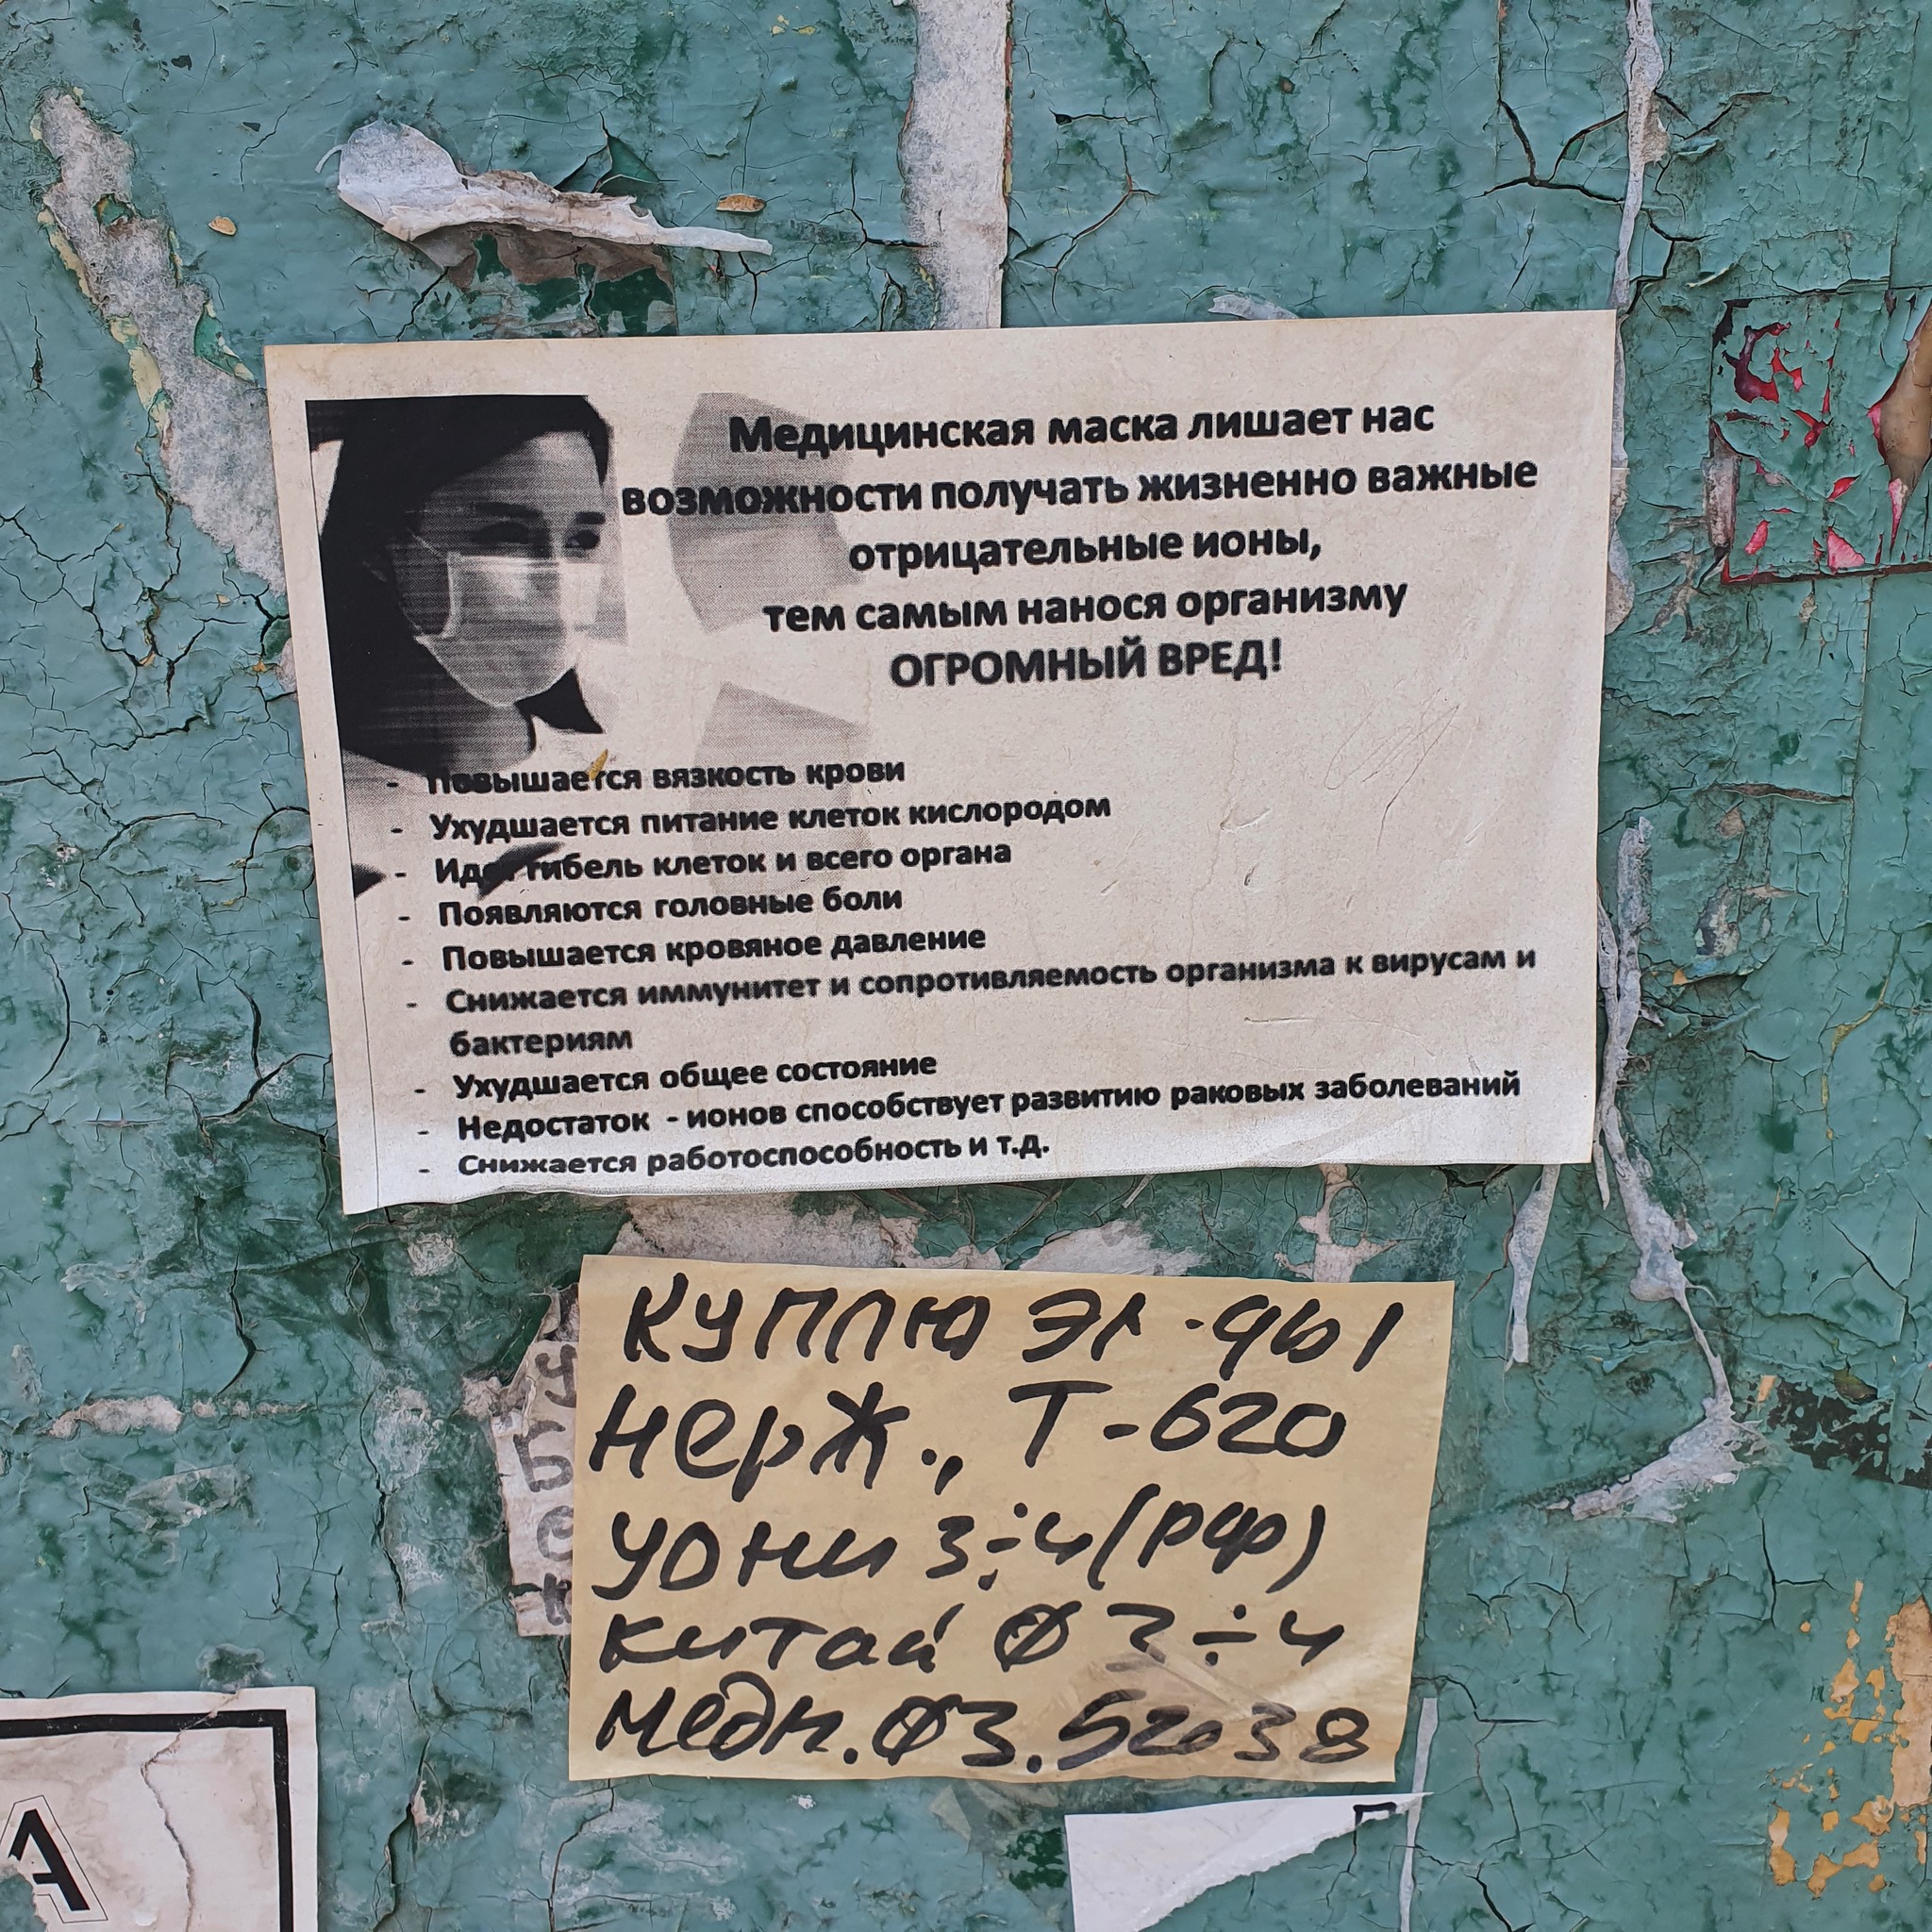 Медицинская маска лишает нас
возможности получать жизненно важные
отрицательные ионы,
тем самым нанося организму
ОГРОМНЫЙ ВРЕД!
- Повышается вязкость крови
- Ухудшается питание клеток кислородом
- Идет гибель клеток и всего органа
- Появляются головные боли
- Повышается кровяное давление
- Снижается иммунитет и сопротивляемость организма к вирусам и
бактериям
- Ухудшается общее состояние
- Недостаток - ионов способствует развитию раковых заболеваний
- Снижается работоспособность и т.д.
КУПЛЮ ЭЛ-ДЫ
НЕРЖ., Т-620
УОНИ 3÷4 (РФ)
КИТАЙ Ø 3÷4
МЕДН. Ø3. 52038
У
Б
А